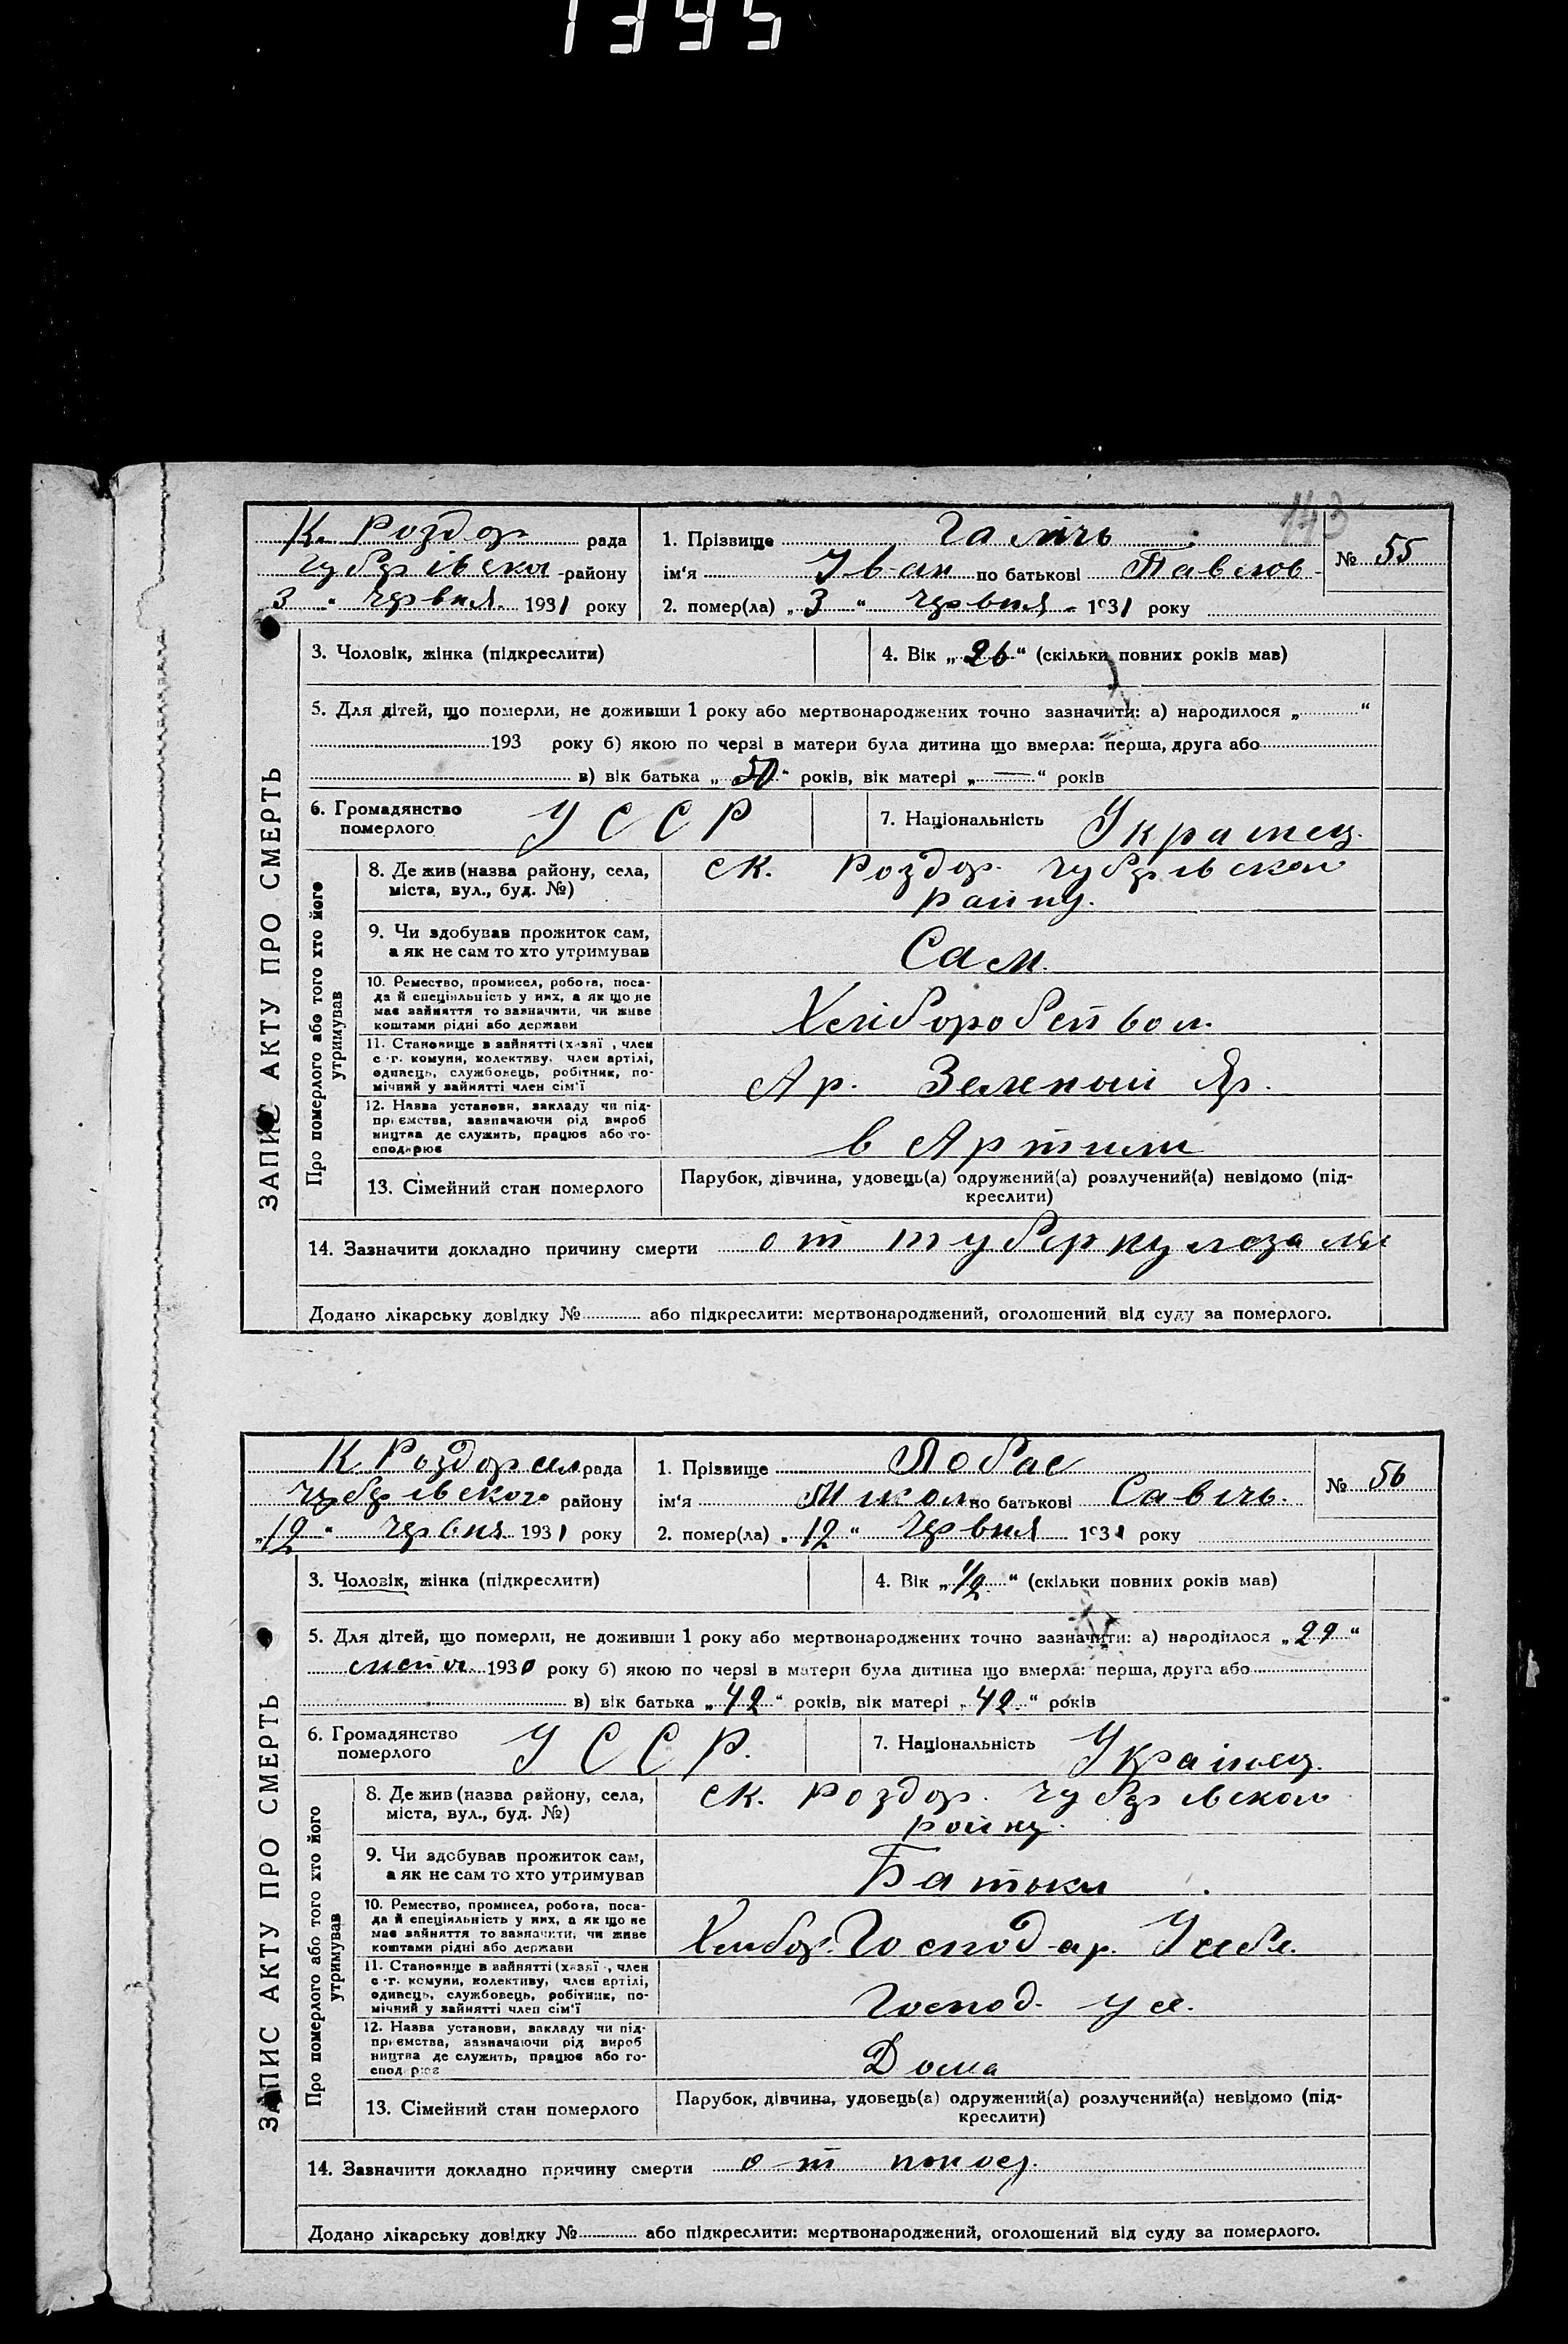 1395
143
К. Роздор рада
Чубарівско району
„3“ Червня 1931 року
1. Прізвище Галичь
ім'я Іван по батькові Павлов
2. помер(ла) „3“ Червня 1931 року
№ 55
ЗАПИС АКТУ ПРО СМЕРТЬ
3. Чоловік, жінка (підкреслити)
4. Вік „26“ (скільки повних років мав)
5. Для дітей, що померли, не доживши 1 року або мертвонароджених точно зазначити: а) народилося „ “
193 року б) якою по черзі в матери була дитина що вмерла: перша, друга або
в) вік батька „50“ років, вік матері „—“ років
6. Громадянство
померлого
УССР
7. Національність
Украинец.
Про померлого або того хто його
утримував
8. Де жив (назва району, села,
міста, вул., буд. №)
ск. Роздор. Чубарівсков
району.
9. Чи здобував прожиток сам,
а як не сам то хто утримував
Сам.
10. Ремество, промисел, робота, поса-
да й специяльність у них, а як що не
має зайняття то зазначити, чи живе
коштами рідні або держави
Хліборобством.
11. Становище в зайнятті (хазяї, член
с.-г. комуни, колективу, член артілі,
одинець, службовець, робітник, по-
мічний у зайнятті член сім'ї
Ар. Зеленый Яр.
12. Назва установи, закладу чи під-
приємства, зазначаючи рід вироб
ництва де служить, працює або го-
сподарює
в Артили
13. Сімейний стан померлого
Парубок, дівчина, удовець(а) одружений(а) розлучений(а) невідомо (під-
креслити)
14. Зазначити докладно причину смерти от туберкулоза
Додано лікарську довідку № або підкреслити: мертвонароджений, оголошений від суду за померлого.
К Роздор сел рада
Чубарівского району
„12“ Червня 1931 року
1. Прізвище Лобас
ім'я Микол по батькові Савичь.
2. помер(ла) „12“ Червня 1931 року
№ 56
ЗАПИС АКТУ ПРО СМЕРТЬ
3. Чоловік, жінка (підкреслити)
4. Вік „1/2“ (скільки повних років мав)
5. Для дітей, що померли, не доживши 1 року або мертвонароджених точно зазначити: а) народилося „29“
1930 року б) якою по черзі в матери була дитина що вмерла: перша, друга або
в) вік батька „42“ років, вік матері „42“ років
6. Громадянство
померлого
УССР.
7. Національність
Украінец.
Про померлого або того хто його
утримував
8. Де жив (назва району, села,
міста, вул., буд. №)
ск. Роздор. Чубарівсков
району.
9. Чи здобував прожиток сам,
а як не сам то хто утримував
Батьки
10. Ремество, промисел, робота, поса-
да й специяльність у них, а як що не
має зайняття то зазначити, чи живе
коштами рідні або держави
Хлибор. Господар. У себе.
11. Становище в зайнятті (хазяї, член
с.-г. комуни, колективу, член артілі,
одинець, службовець, робітник, по-
мічний у зайнятті член сім'ї
Господ.
12. Назва установи, закладу чи під-
приємства, зазначаючи рід вироб
ництва де служить, працює або го-
сподарює
Дома
13. Сімейний стан померлого
Парубок, дівчина, удовець(а) одружений(а) розлучений(а) невідомо (під-
креслити)
14. Зазначити докладно причину смерти от понос
Додано лікарську довідку № або підкреслити: мертвонароджений, оголошений від суду за померлого.